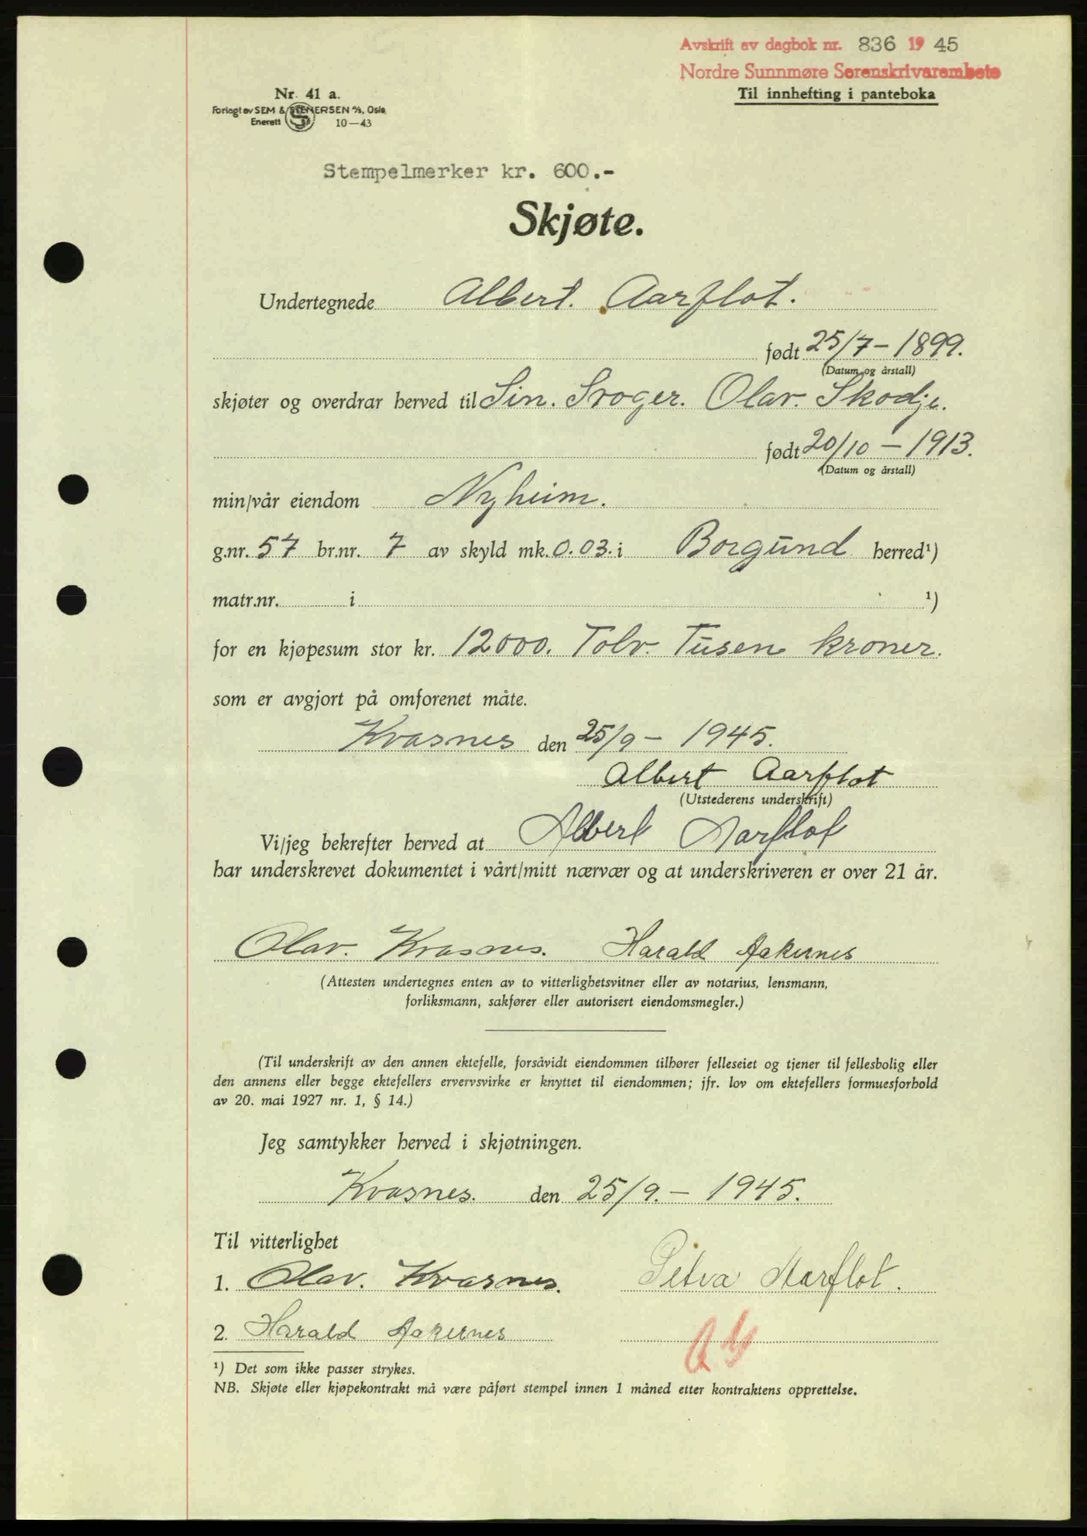 Avskrift av dagbok nr. 836 1945
Nordre Sunnmøre Sorenskrivarembete
Til innhefting i panteboka
Nr. 41 a.
Forlagt av SEM & STENERSEN A/S, Oslo
Enerett 10—43
Stempelmerker kr. 600.-
Skjøte.
Undertegnede Albert. Aarflot.
født 25/7 - 1899.
(Datum og årstall)
skjøter og overdrar herved til Sin. Svoger. Olav. Skodje.
født 20/10 - 1913.
(Datum og årstall)
min/vår eiendom Nyheim.
g.nr. 57 br.nr. 7 av skyld mk. 0.03. i Borgund herred¹)
matr.nr. i ¹)
for en kjøpesum stor kr. 12000. Tolv. Tusen kroner.
som er avgjort på omforenet måte.
Kvasnes den 25/9 - 1945.
Albert Aarflot
(Utstederens underskrift)
Vi/jeg bekrefter herved at Albert Aarflot
har underskrevet dokumentet i vårt/mitt nærvær og at underskriveren er over 21 år.
Olav. Kvasnes. Harald Aakernes
(Attesten undertegnes enten av to vitterlighetsvitner eller av notarius, lensmann,
forliksmann, sakfører eller autorisert eiendomsmegler.)
(Til underskrift av den annen ektefelle, forsåvidt eiendommen tilhører felleseiet og tjener til fellesbolig eller
den annens eller begge ektefellers ervervsvirke er knyttet til eiendommen; jfr. lov om ektefellers formuesforhold
av 20. mai 1927 nr. 1, § 14.)
Jeg samtykker herved i skjøtningen.
Kvasnes. den 25/9. - 1945.
Til vitterlighet
1. Olav. Kvasnes. Petva Aarflot.
2. Harald Aakernes
¹) Det som ikke passer strykes.
NB. Skjøte eller kjøpekontrakt må være påført stempel innen 1 måned etter kontraktens opprettelse.